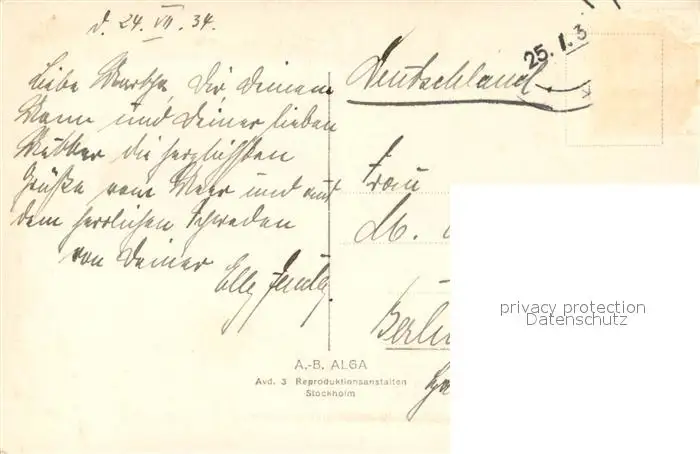 d. 24. VII. 34.
25.1.3
Liebe Martha, Dir Deinem
Mann und Deiner lieben
Mutter die herzlichsten
Grüße vom Meer und aus
dem herrlichen Schweden
von Deiner
Elly
Deutschland
Frau
M.
Berlin
privacy protection
Datenschutz
A.-B. ALGA
Avd. 3 Reproduktionsanstalten
Stockholm